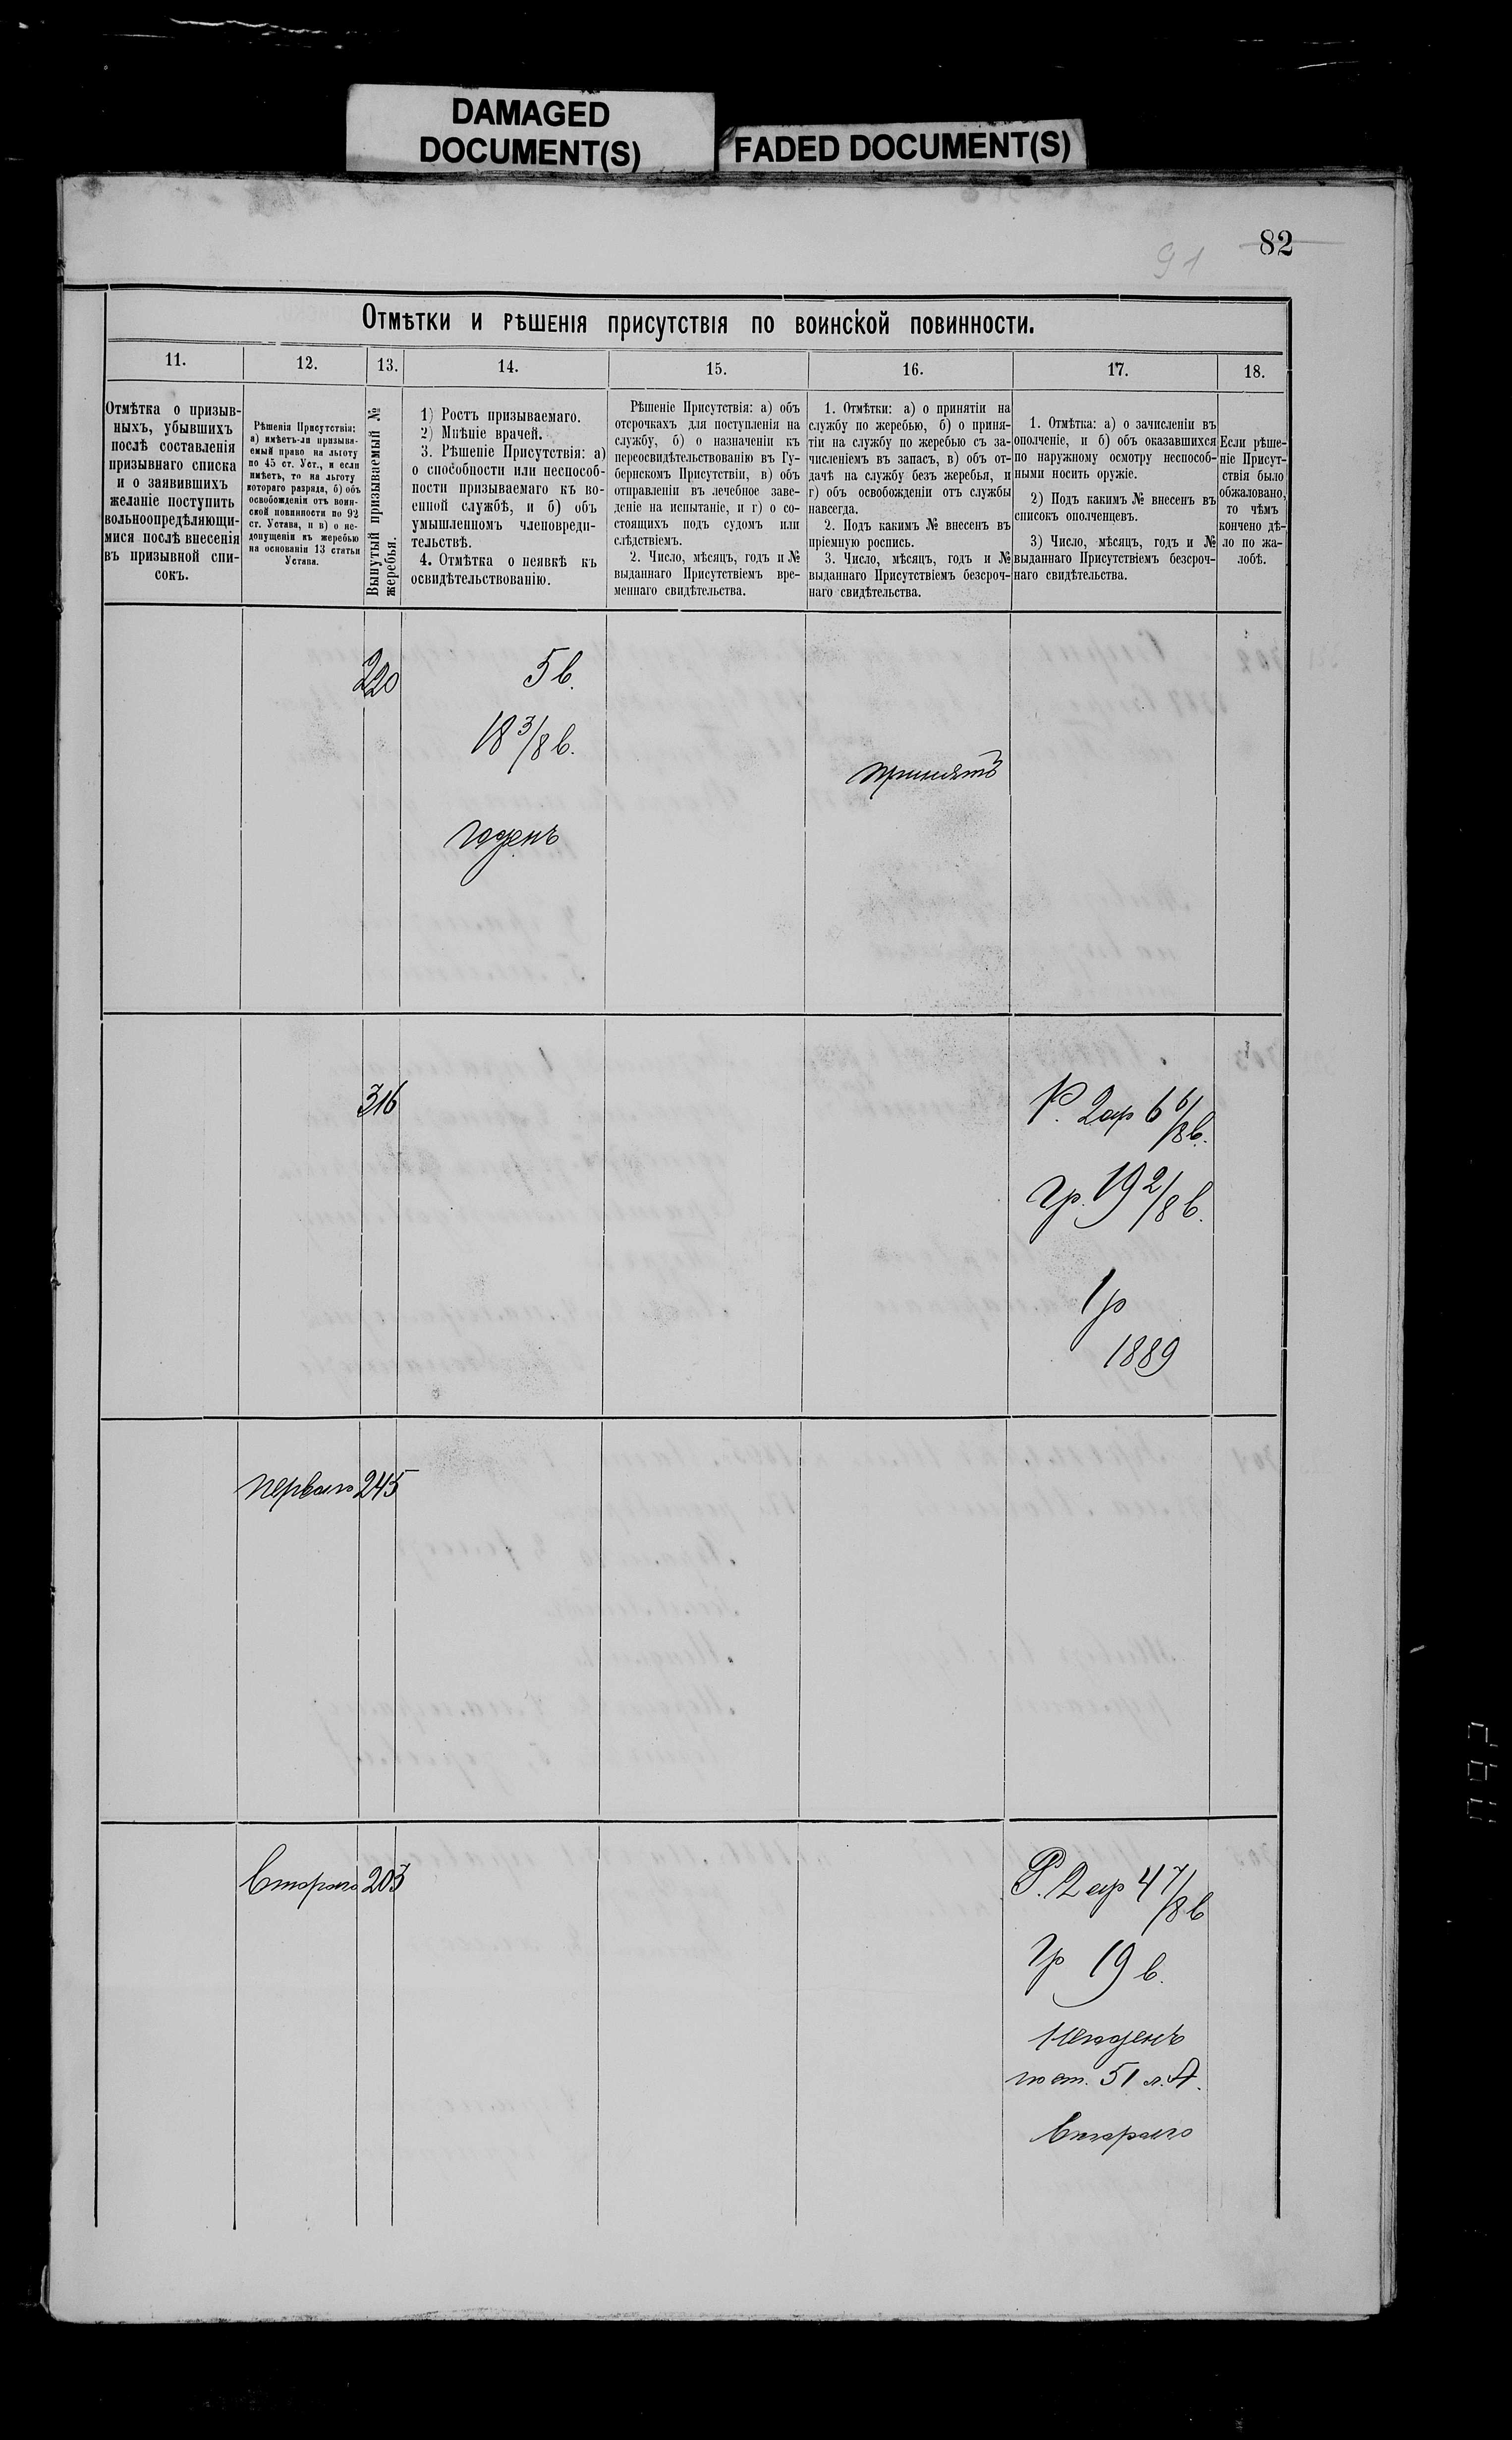 DAMAGED
DOCUMENT(S)
FADED DOCUMENT(S)
82
91
Отмѣтки и рѣшенія присутствія по воинской повинности.
11.
12.
13.
14.
15.
16.
17.
18.
Отмѣтка о призыв-
ныхъ, убывшихъ
послѣ составленія
призывнаго списка
и о заявившихъ
желаніе поступить
вольноопредѣляющи-
мися послѣ внесенія
въ призывной спи-
сокъ.
Рѣшенія Присутствія:
а) имѣетъ-ли призыва-
емый право на льготу
по 45 ст. Уст., и если
имѣетъ, то на льготу
котораго разряда, б) объ
освобожденіи отъ воин-
ской повинности по 92
ст. Устава, и в) о не-
допущеніи къ жеребью
на основаніи 13 статьи
Устава.
Вынутый призываемый №
жеребья.
1) Ростъ призываемаго.
2) Мнѣніе врачей.
3. Рѣшеніе Присутствія: а)
о способности или неспособ-
ности призываемаго къ во-
енной службѣ, и б) объ
умышленномъ членовреди-
тельствѣ.
4. Отмѣтка о неявкѣ къ
освидѣтельствованію.
Рѣшеніе Присутствія: а) объ
отсрочкахъ для поступленія на
службу, б) о назначеніи къ
переосвидѣтельствованію въ Гу-
бернскомъ Присутствіи, в) объ
отправленіи въ лечебное заве-
деніе на испытаніе, и г) о со-
стоящихъ подъ судомъ или
слѣдствіемъ.
2. Число, мѣсяцъ, годъ и №
выданнаго Присутствіемъ вре-
меннаго свидѣтельства.
1. Отмѣтки: а) о принятіи на
службу по жеребью, б) о приня-
тіи на службу по жеребью съ за-
численіемъ въ запасъ, в) объ от-
дачѣ на службу безъ жеребья, и
г) объ освобожденіи отъ службы
навсегда.
2. Подъ какимъ № внесенъ въ
пріемную роспись.
3. Число, мѣсяцъ, годъ и №
выданнаго Присутствіемъ безсроч-
наго свидѣтельства.
1. Отмѣтка: а) о зачисленіи въ
ополченіе, и б) объ оказавшихся
по наружному осмотру неспособ-
ными носить оружіе.
2) Подъ какимъ № внесенъ въ
списокъ ополченцевъ.
3) Число, мѣсяцъ, годъ и №
выданнаго Присутствіемъ безсроч-
наго свидѣтельства.
Если рѣше-
ніе Присут-
ствія было
обжаловано,
то чѣмъ
кончено дѣ-
ло по жа-
лобѣ.
220
5 в.
18 3/8 в.
годенъ
принятъ
316
Р. 2 ар 6 6/8 в.
гр. 19 2/8 в.
1 р
1889
перваго 245
Втораго 203
Р. 2 ар 4 7/8 в
гр 19 в.
Негоденъ
по ст. 51 л. А.
Втораго